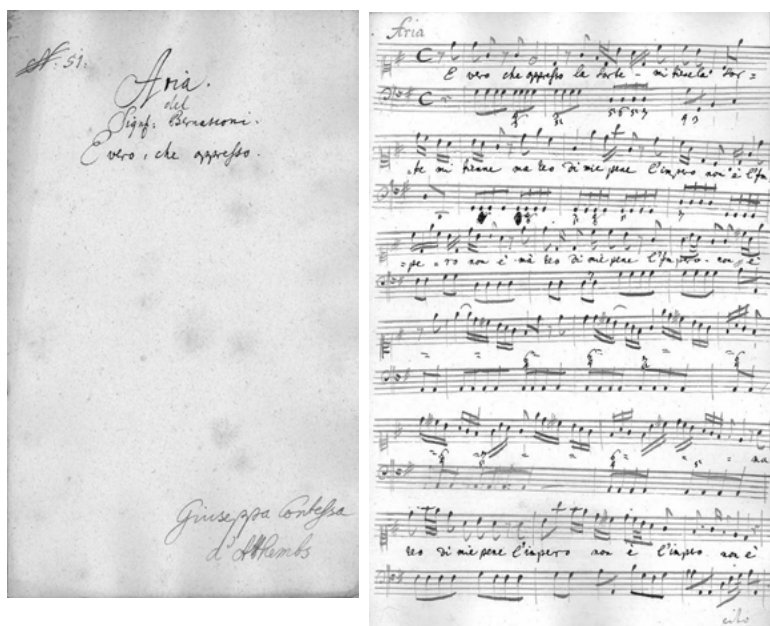 N. 51.
Aria.
del
Sigr: Bernasconi.
E vero, che oppresso.
Giuseppa Contessa
d'Atthembs
Aria
E vero che oppresso la sorte - mi tiene la sor=
=te mi tienne ma reo di mie pene l'impero non è l'Im
=pe=ro non è mà reo di mie pene l'Impero non è
ma
reo di mie pene l'impero non è l'impero non è